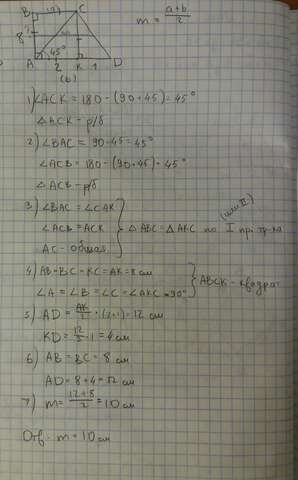 B (2) C
m = a+b/2
8
45°
A 2 K 1 D
(b)
1) ∠ACK = 180 - (90+45) = 45°
△ACK - р/б
2) ∠BAC = 90-45 = 45°
∠ACB = 180 - (90+45) - 45°
△ACB - р/б
3) ∠BAC = ∠CAK
∠ACB = ACK
AC - общая
△ABC = △AKC по I пр. тр-ка
(или II)
4) AB = BC - KC = AK = 8 см
∠A = ∠B = ∠C = ∠AKC = 90°
ABCK - квадрат
5) AD = AK/2 · (2+1) = 12 см
KD = 12/3 · 1 = 4 см
6) AB = BC = 8 см
AD = 8+4 = 12 см
7) m = 12+8/2 = 10 см
Отв - m = 10 см